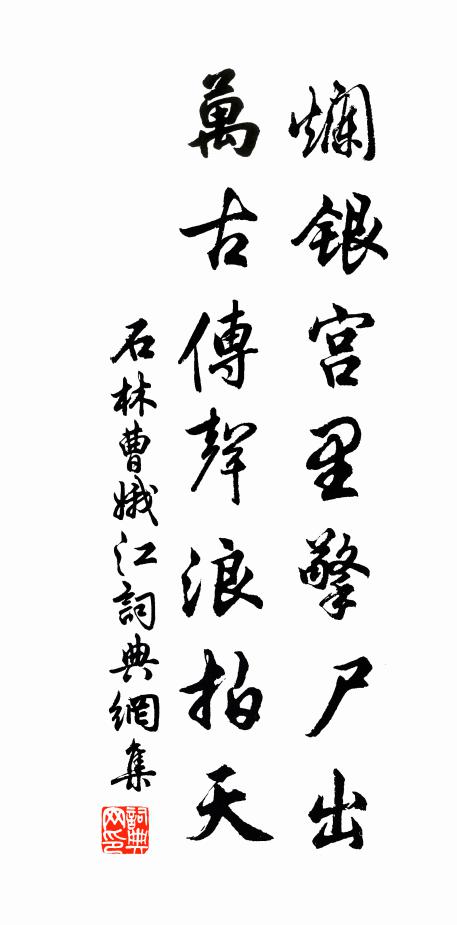 爛銀宮里擎尸出
萬古傳聲浪拍天
石林曹娥江詞典網集
詞典網印